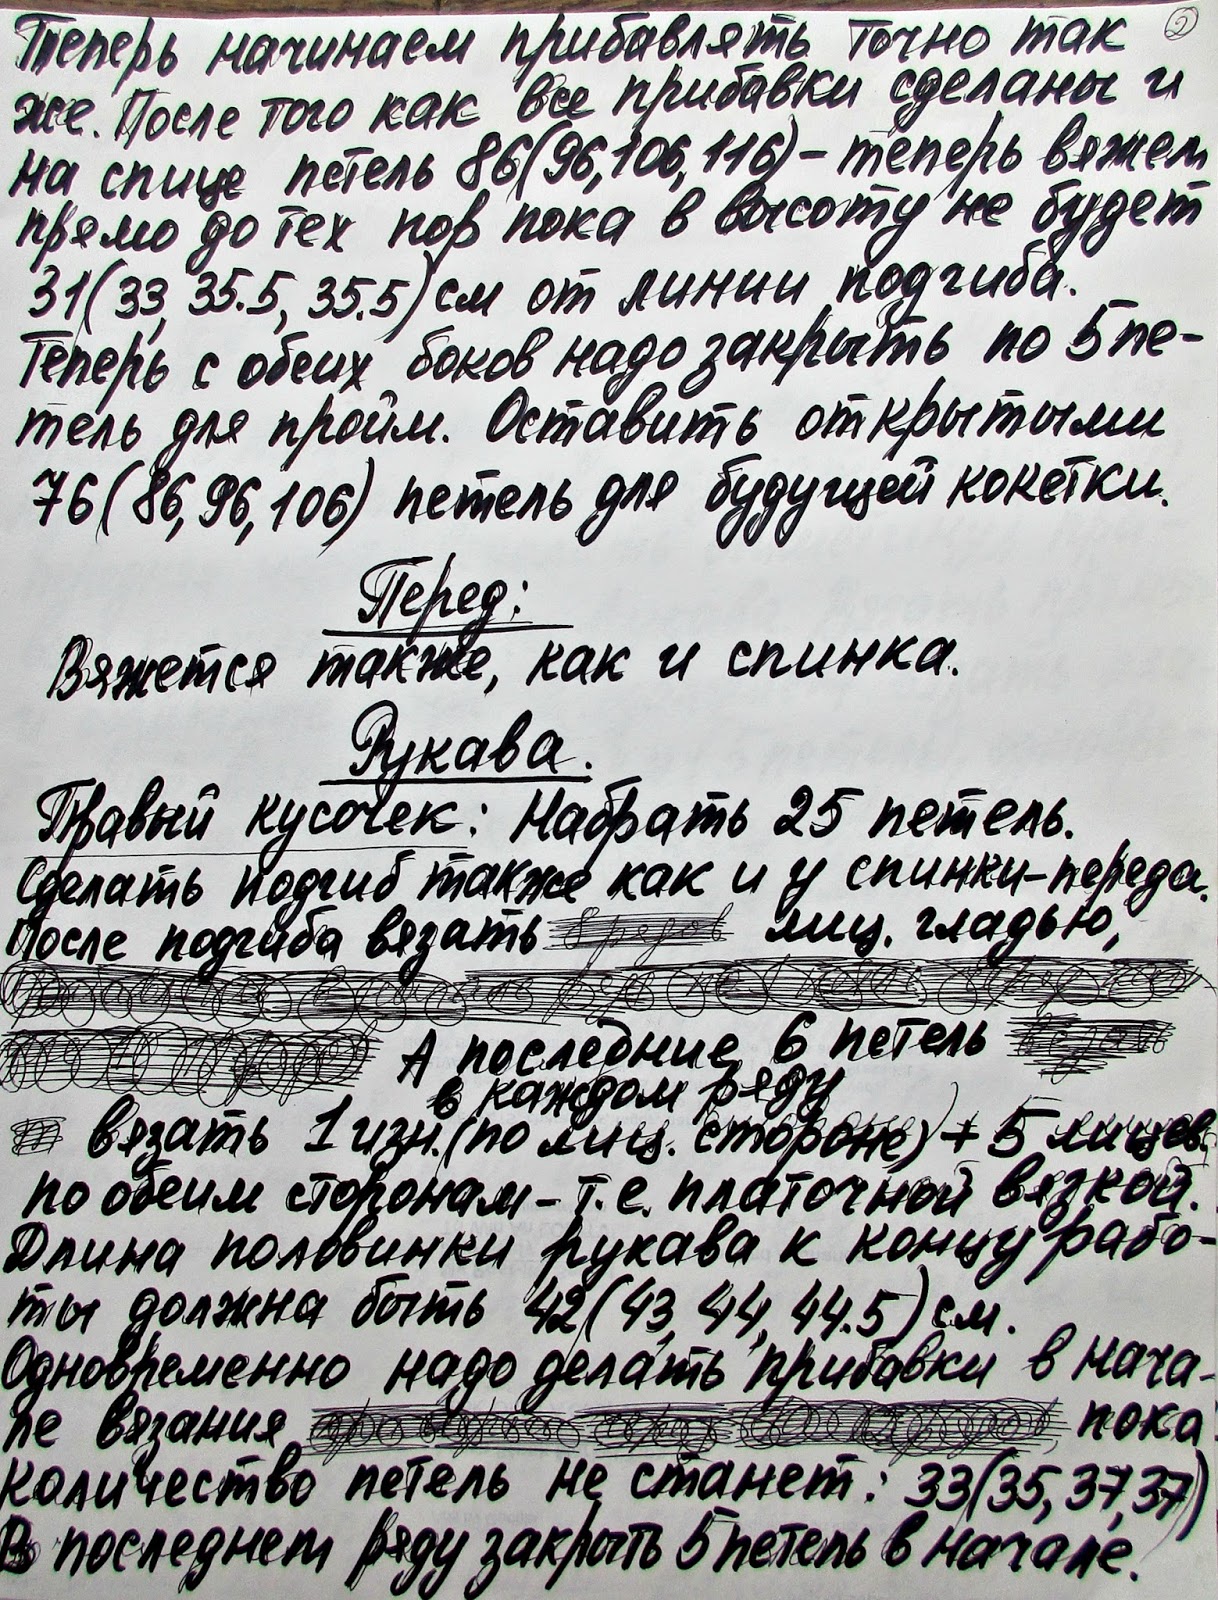 2
Теперь начинаем прибавлять точно так
же. После того как все прибавки сделаны и
на спице петель 86(96,106,116) – теперь вяжем
прямо до тех пор пока в высоту не будет
31(33, 35.5, 35.5) см от линии подгиба.
Теперь с обеих боков надо закрыть по 5 пе-
тель для пройм. Оставить открытыми
76(86,96,106) петель для будущей кокетки.
Перед:
Вяжется также, как и спинка.
Рукава.
Правый кусочек: Набрать 25 петель.
Сделать подгиб также как и у спинки-переда.
После подгиба вязать лиц. гладью,
А последние 6 петель
в каждом ряду
вязать 1 изн. (по лиц. стороне) + 5 лицев.
по обеим сторонам – т.е. платочной вязкой.
Длина половинки рукава к концу рабо-
ты должна быть 42(43, 44, 44.5) см.
Одновременно надо делать прибавки в нача-
ле вязания пока
количество петель не станет: 33(35, 37, 37)
В последнем ряду закрыть 5 петель в начале.